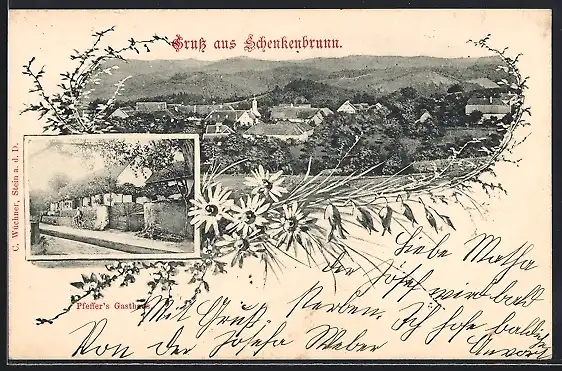 Gruß aus Schenkenbrunn.
C. Wüchner, Stein a. d. D.
Pfeffer's Gasthaus
Liebe Matha
der Josef wird bald
sterben. Ich hofe baldige
Antwort
Mit Gruß
Von der Josefa Weber